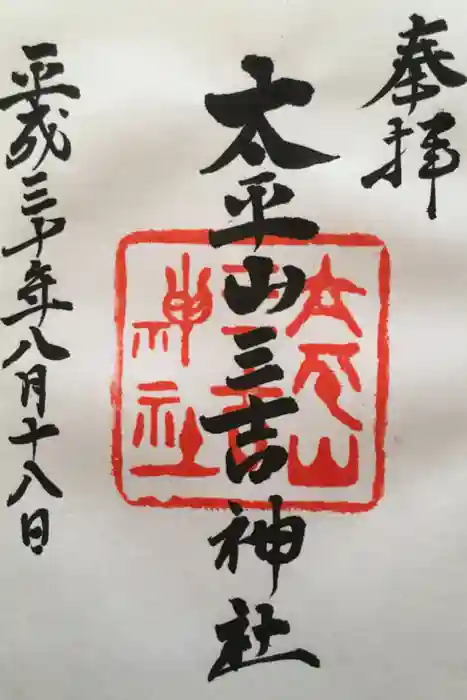 奉拝
太平山三吉神社
太平山
三吉
神社
平成三十年八月十八日